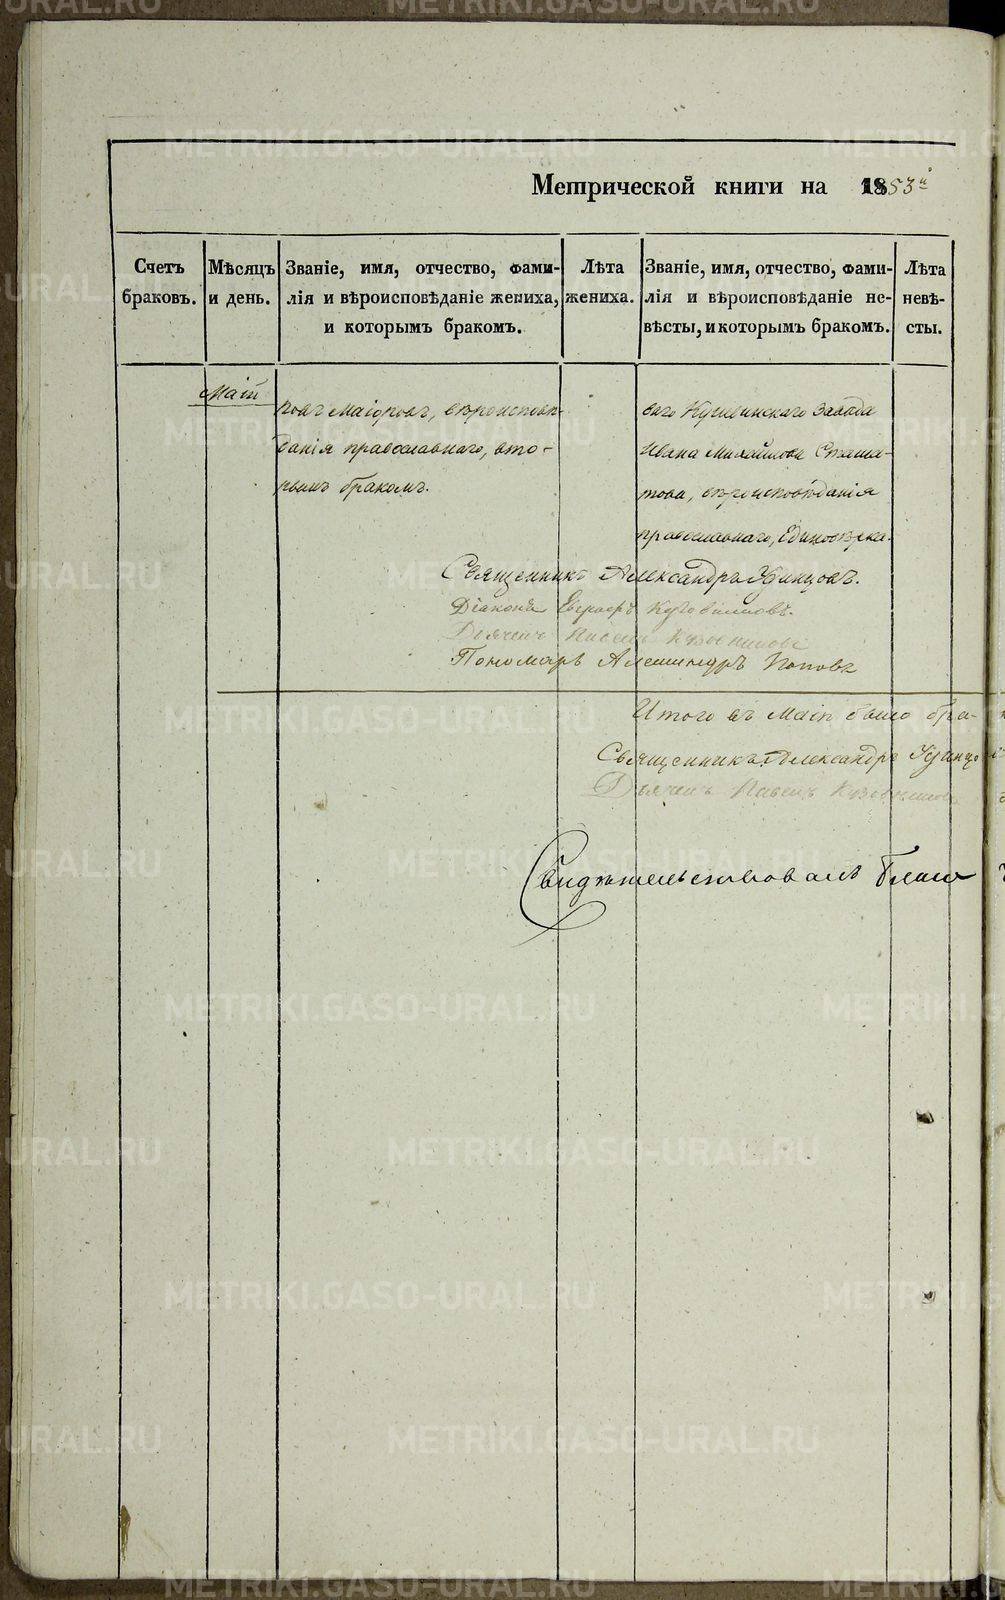 METRIKI.GASO-URAL.RU
Метрической книги на 1853й
Счетъ браковъ.
Мѣсяцъ и день.
Званіе, имя, отчество, фами-
лія и вѣроисповѣданіе жениха,
и которымъ бракомъ.
Лѣта жениха.
Званіе, имя, отчество, фами-
лія и вѣроисповѣданіе не-
вѣсты, и которымъ бракомъ.
Лѣта невѣ-
сты.
Маій
ровъ Маіоровъ, вѣроисповѣ-
данія православнаго, вто-
рымъ бракомъ.
скаго Кушвинскаго завода
Ивана Михайлова
това, вѣроисповѣданія
православнаго,
Священникъ Александръ Удинцовъ.
Діаконъ Евграфъ
Дьячекъ Павелъ
Пономарь Александръ Поповъ
Итого въ Маіи было бра-
Священникъ Александръ Удинцо
Дьячекъ Павелъ
Свидѣтельствовалъ Благо